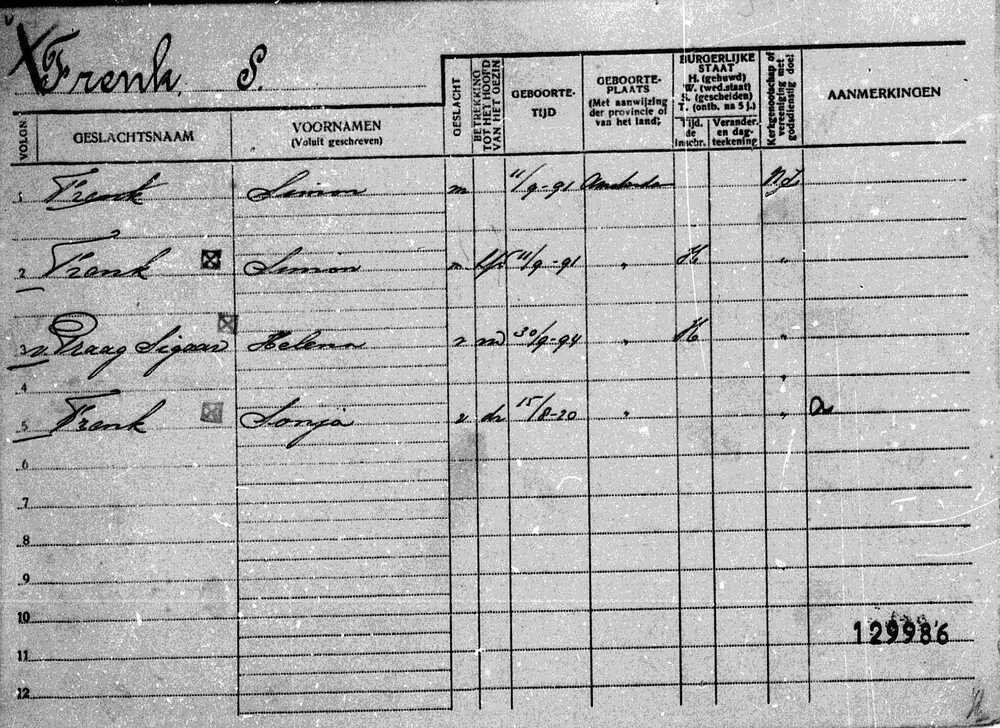 Frenk, S.
VOLGNR. GESLACHTSNAAM VOORNAMEN (Voluit geschreven) GESLACHT BETREKKING TOT HET HOOFD VAN HET GEZIN GEBOORTE-TIJD GEBOORTE-PLAATS (Met aanwijzing der provincie of van het land) BURGERLIJKE STAAT H. (gehuwd) W. (wed.staat) S. (gescheiden) T. (ontb. na 5 j.) Tijd. de inschr. Verander. en dag-teekening Kerkgenootschap of vereeniging met godsdienstig doel AANMERKINGEN
1 Frenk Simon m 11/9-91 Amsterdam N.I.
2 Frenk Simon m 11/9-91 " H "
3 v. Praag Sigaar Helena v 30/9-94 " H "
4 "
5 Frenk Sonja v dr 15/8-20 " "
6
7
8
9
10
129986
11
12